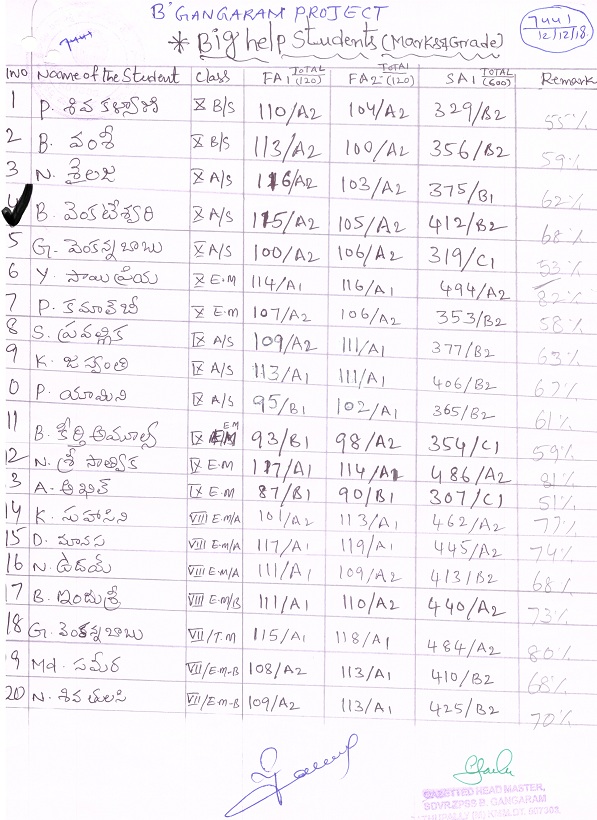 B' GANGARAM PROJECT
7441
7441
12/12/18
* Big help Students (Marks&Grade)
SlNO Name of the Student Class FA1 TOTAL (120) FA2 TOTAL (120) SA1 TOTAL (600) Remark
1 P. శివ కళ్యాణి X B/S 110/A2 104/A2 329/B2 55%
2 B. వంశీ X B/S 113/A2 100/A2 356/B2 59%
3 N. శైలజ X A/S 116/A2 103/A2 375/B1 62%
4 B. వెంకటేశ్వరి X A/S 115/A2 105/A2 412/B2 68%
5 G. వెంకన్నబాబు X A/S 100/A2 106/A2 319/C1 53%
6 Y. సాయి ప్రియ X E.M 114/A1 116/A1 494/A2 82%
7 P. కమాల్‌బీ X E.M 107/A2 106/A2 353/B2 58%
8 S. ప్రవల్లిక IX A/S 109/A2 111/A1 377/B2 63%
9 K. జస్వంతి IX A/S 113/A1 111/A1 406/B2 67%
0 P. యామిని IX A/S 95/B1 102/A1 365/B2 61%
11 B. కీర్తి అమూల్య IX EM 93/B1 98/A2 354/C1 59%
12 N. శ్రీ సాత్విక IX E.M 117/A1 114/A1 486/A2 81%
3 A. అఖిల్ IX E.M 87/B1 90/B1 307/C1 51%
14 K. సుహాసిని VIII E.M/A 101/A2 113/A1 462/A2 77%
15 D. మానస VIII E.M/A 117/A1 119/A1 445/A2 74%
16 N. ఉదయ్ VIII E.M/A 111/A1 109/A2 413/B2 68%
17 B. ఇందుశ్రీ VIII E.M/B 111/A1 110/A2 440/A2 73%
18 G. వెంకన్నబాబు VII/T.M 115/A1 118/A1 484/A2 80%
9 Md. సమీర VII/E.M-B 108/A2 113/A1 410/B2 68%
20 N. శివ తులసి VII/E.M-B 109/A2 113/A1 425/B2 70%
GAZETTED HEAD MASTER,
B. GANGARAM